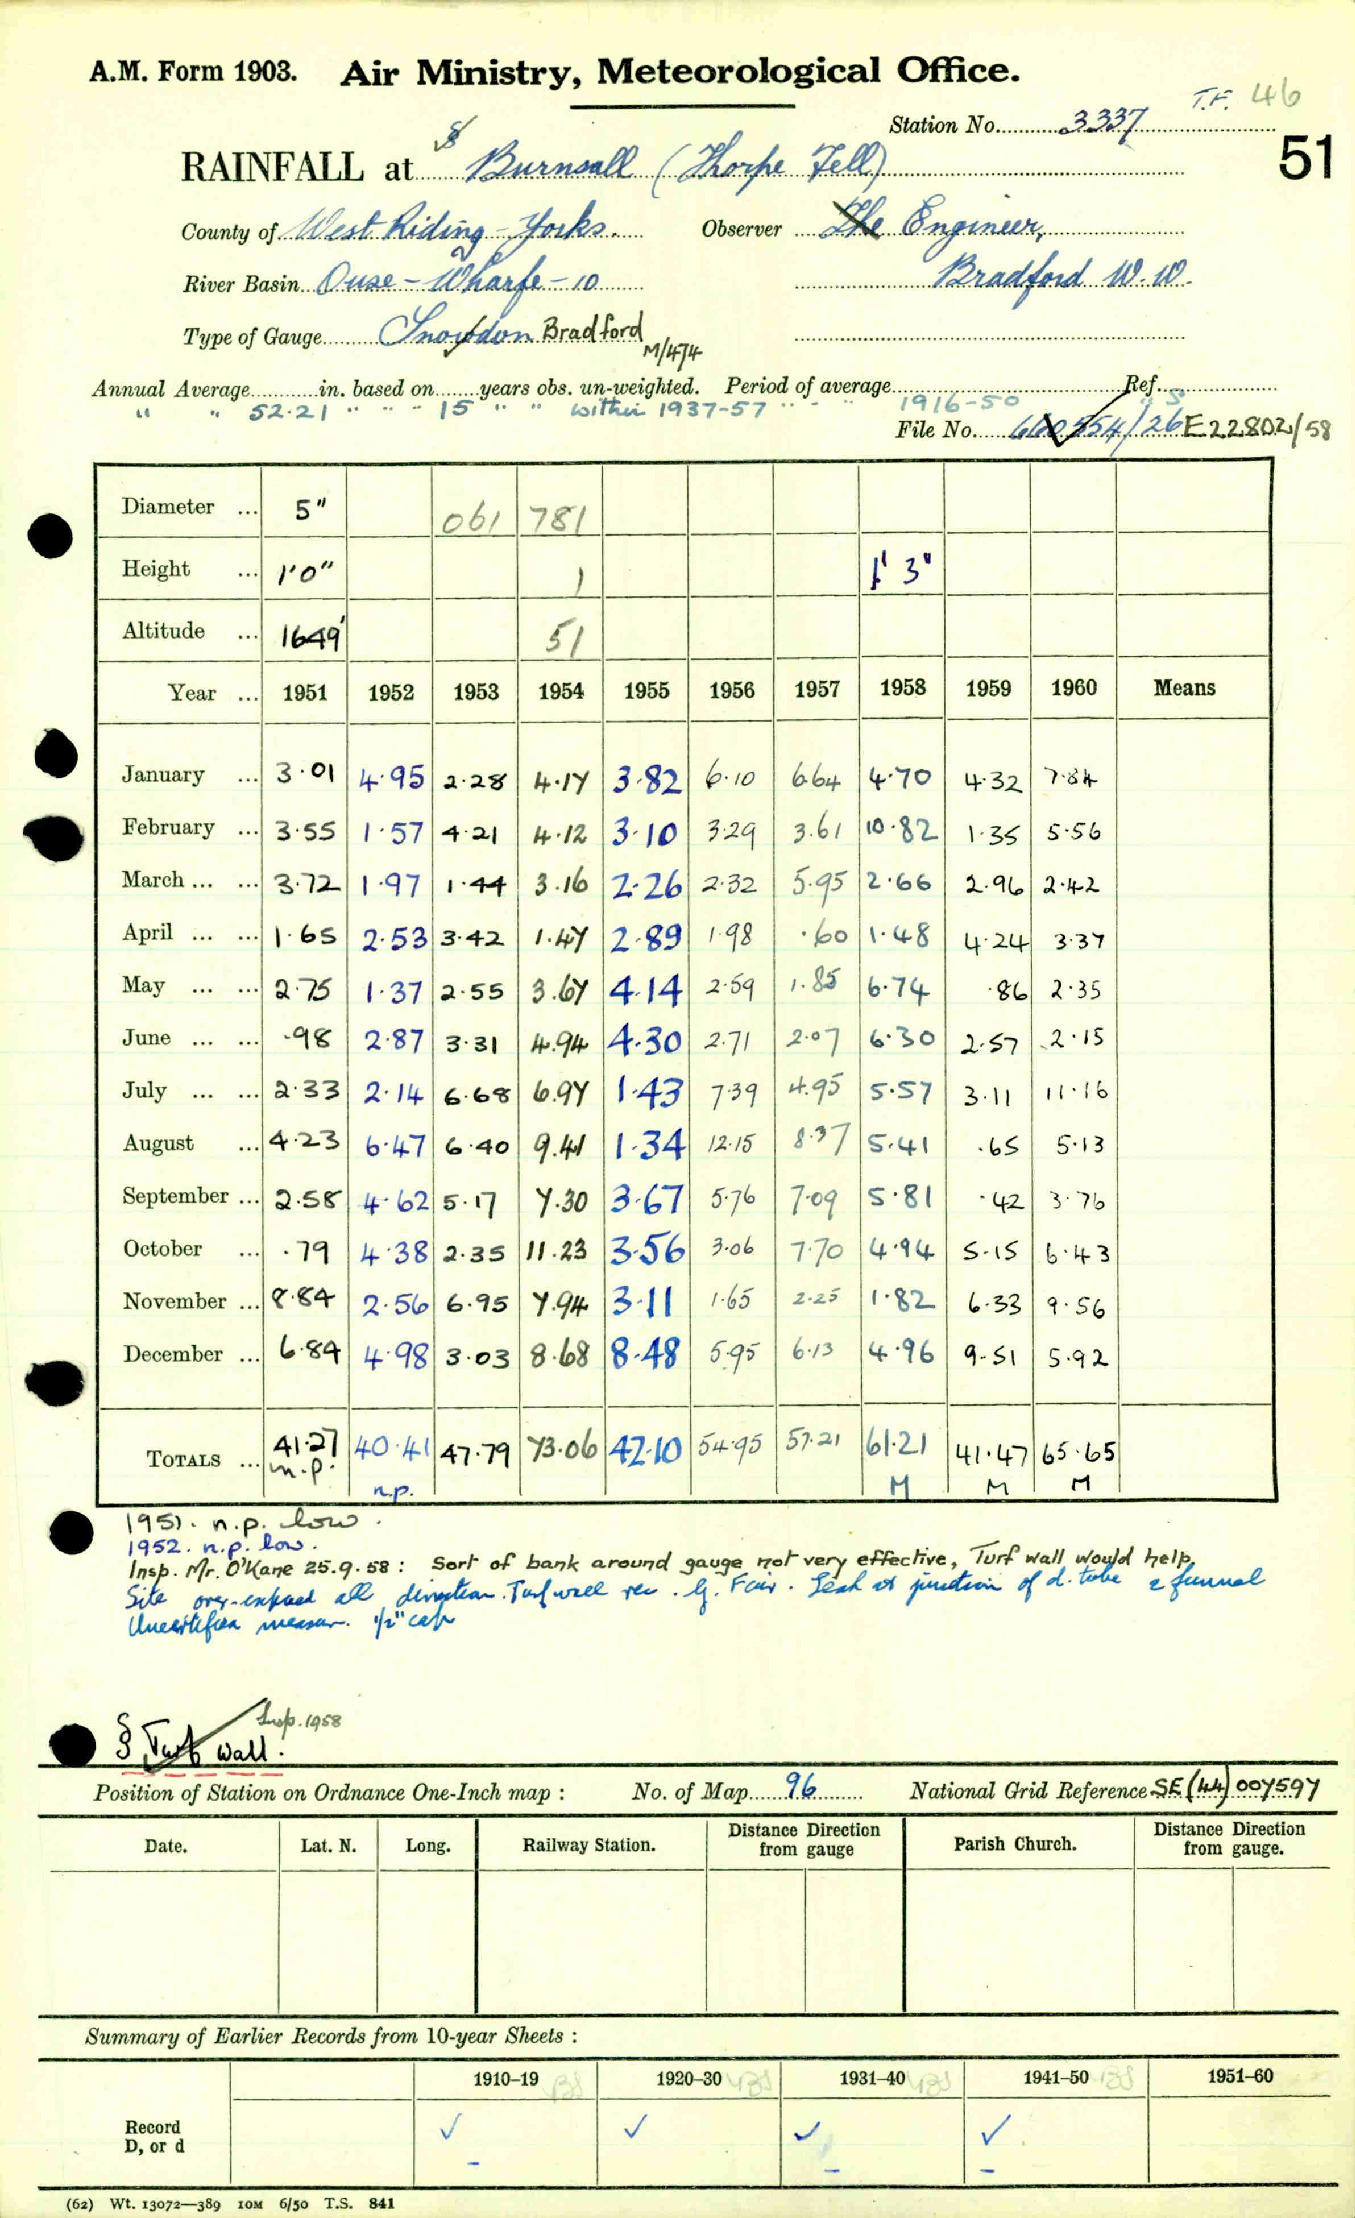 A.M. Form 1903. Air Ministry, Meteorological Office.
T.F. 46
Station No. 3337
51
RAINFALL at § Burnsall (Thorpe Fell)
County of West Riding - Yorks. Observer The Engineer,
River Basin Ouse - Wharfe - 10 Bradford W.W.
Type of Gauge Snowdon Bradford M/474
Annual Average in. based on years obs. un-weighted. Period of average Ref.
" " 52.21 " " - 15 " " within 1937-57 " - " 1916-50 " S
File No. 660554/26 E22802/58
Diameter ... 5" 061 781
Height ... 1'0" 1 1' 3"
Altitude ... 1649' 51
Year ... 1951 1952 1953 1954 1955 1956 1957 1958 1959 1960 Means
January ... 3.01 4.95 2.28 4.17 3.82 6.10 6.64 4.70 4.32 7.84
February ... 3.55 1.57 4.21 4.12 3.10 3.29 3.61 10.82 1.35 5.56
March ... ... 3.72 1.97 1.44 3.16 2.26 2.32 5.95 2.66 2.96 2.42
April ... ... 1.65 2.53 3.42 1.47 2.89 1.98 .60 1.48 4.24 3.37
May ... ... 2.75 1.37 2.55 3.67 4.14 2.59 1.85 6.74 .86 2.35
June ... ... .98 2.87 3.31 4.94 4.30 2.71 2.07 6.30 2.57 2.15
July ... ... 2.33 2.14 6.68 6.97 1.43 7.39 4.95 5.57 3.11 11.16
August ... 4.23 6.47 6.40 9.41 1.34 12.15 8.37 5.41 .65 5.13
September ... 2.58 4.62 5.17 7.30 3.67 5.76 7.09 5.81 .42 3.76
October ... .79 4.38 2.35 11.23 3.56 3.06 7.70 4.94 5.15 6.43
November ... 8.84 2.56 6.95 7.94 3.11 1.65 2.25 1.82 6.33 9.56
December ... 6.84 4.98 3.03 8.68 8.48 5.95 6.13 4.96 9.51 5.92
TOTALS ... 41.27 40.41 47.79 73.06 42.10 54.95 57.21 61.21 41.47 65.65
n.p. n.p. M M M
1951. n.p. low.
1952. n.p. low.
Insp. Mr. O'Kane 25.9.58: Sort of bank around gauge not very effective, Turf wall would help.
Site over-exposed all direction. Turf wall rec. G. Fair. Leak at junction of d. tube & funnel
Uncertified measure. 1/2" cap
Insp. 1958
§ Turf wall.
Position of Station on Ordnance One-Inch map : No. of Map 96 National Grid Reference SE(44)007597
Date. Lat. N. Long. Railway Station. Distance Direction from gauge Parish Church. Distance Direction from gauge.
Summary of Earlier Records from 10-year Sheets :
1910–19 1920–30 1931–40 1941–50 1951–60
Record D, or d ✓ ✓ ✓ ✓
– – –
(62) Wt. 13072—389 10M 6/50 T.S. 841